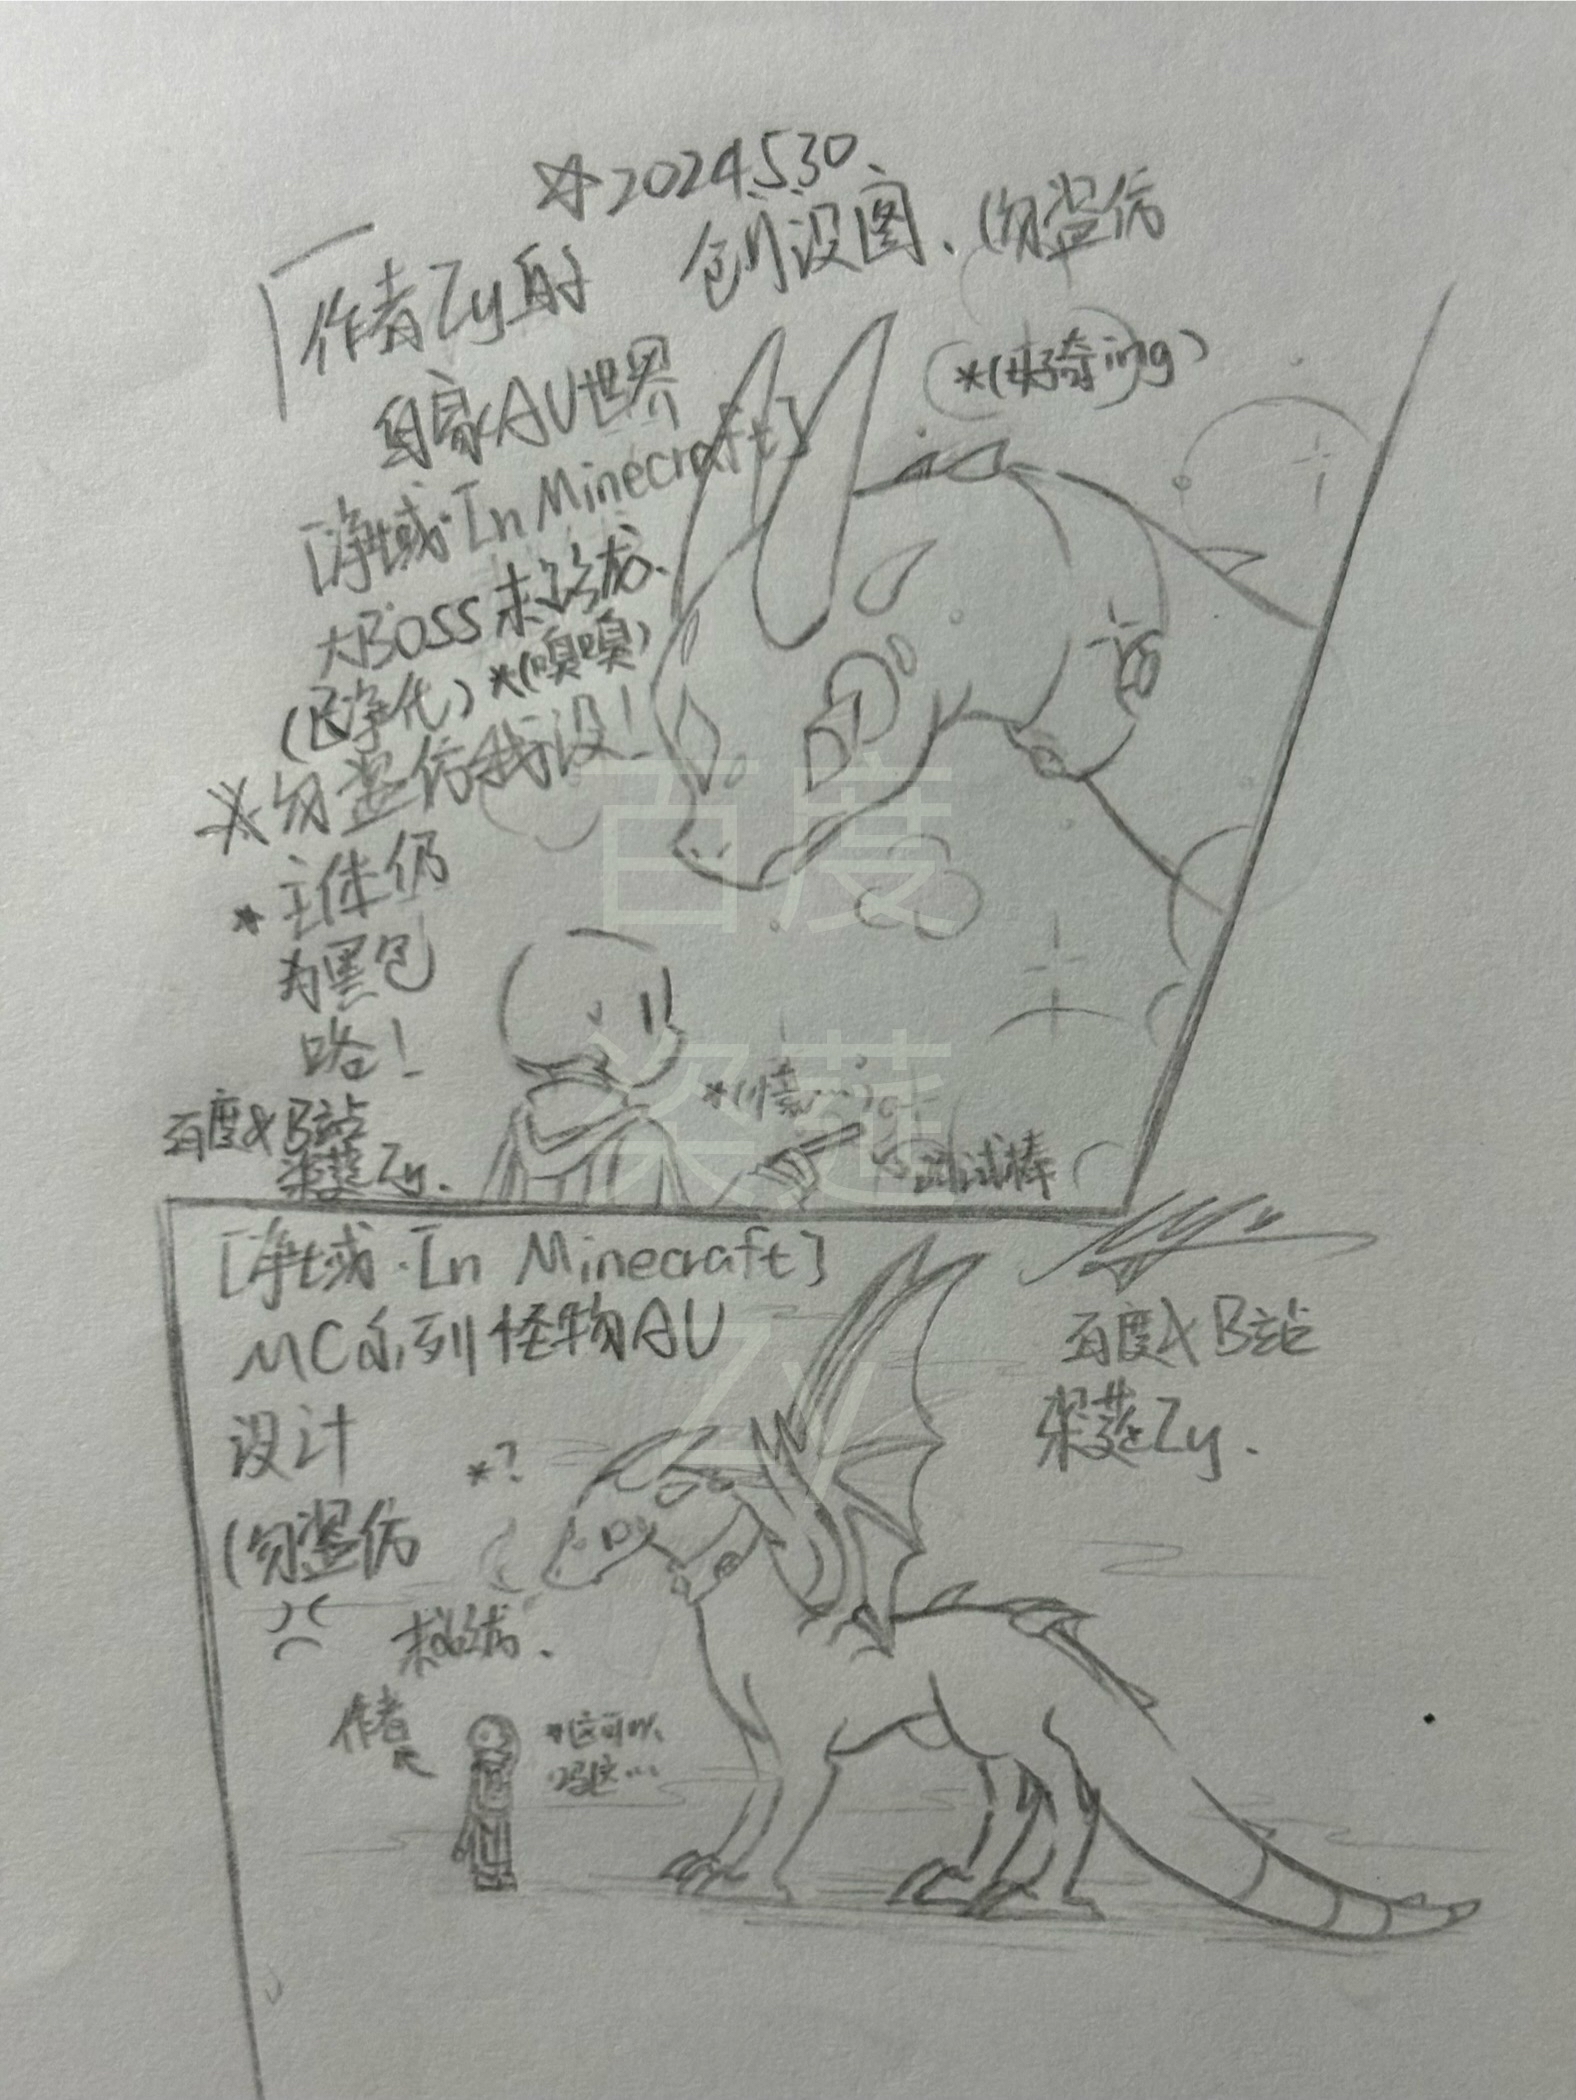 ☆2024.5.30.
创设图.(勿盗仿
「作者Zy的
自家AU世界
[净域·In Minecraft]
大BOSS末影龙.
(已净化) *(嗅嗅)
*(好奇ing)
※勿盗仿我设!
*主体仍
为黑色
咯!
百度&B站
梁莲Zy.
试棒
[净域·In Minecraft]
MC系列怪物AU
设计
(勿盗仿
*?
末影龙.
作者
*(这可以
吗这…
百度&B站
梁莲Zy.
百度
梁莲
Zy